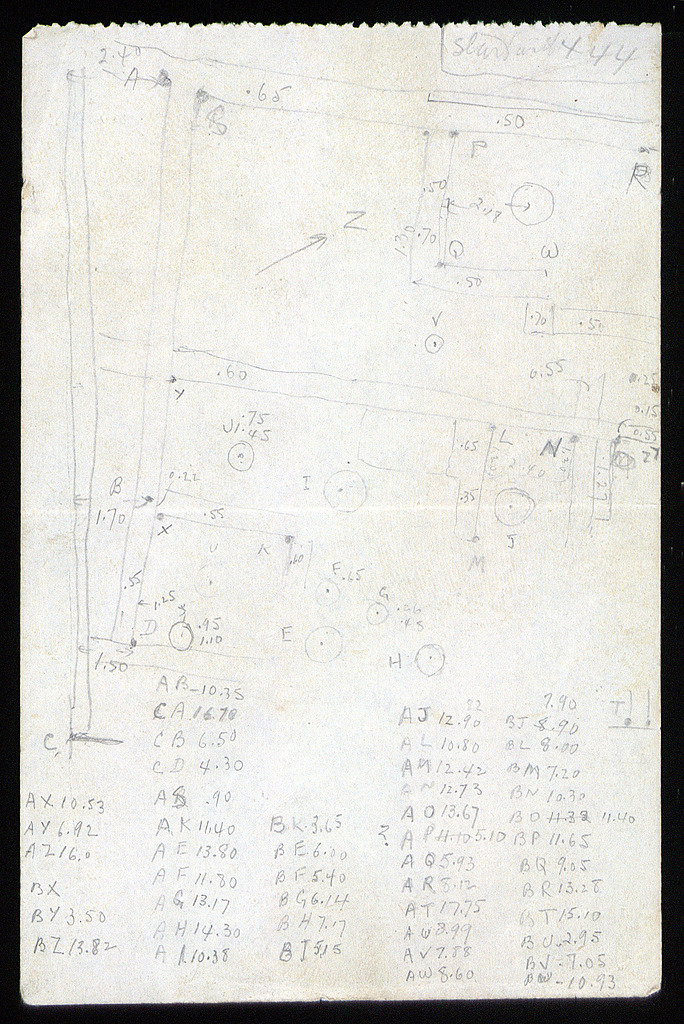 2.40
A
S
.65
.50
P
R
.50
2.18
1.30
.70
Z
Q
W
.50
V
.70
.50
.60
Y
0.55
0.15
0.55
U
.75
.45
L
N
.65
2.40
B
0.22
I
1.70
X
.55
.35
J
K
.60
M
.55
F
.65
G
1.25
D
.95
1.10
E
H
1.50
C
T
AB-10.35
CA 16.78
CB 6.50
CD 4.30
AS .90
AK 11.40
AE 13.80
AF 11.80
AG 13.17
AH 14.30
AI 10.38
AX 10.53
AY 6.92
AZ 16.0
BX
BY 3.50
BZ 13.82
BK 3.65
BE 6.00
BF 5.40
BG 6.14
BH 7.17
BI 5.15
AJ 12.90
AL 10.80
AM 12.42
AN 12.73
AO 13.67
? AP 11.10 5.10
AQ 5.93
AR 8.12
AT 17.75
AU 8.99
AV 7.88
AW 8.60
7.90
BJ 8.90
BL 8.00
BM 7.20
BN 10.30
BO 11.38 11.40
BP 11.65
BQ 9.05
BR 13.28
BT 15.10
BU 2.95
BV 7.05
BW-10.93